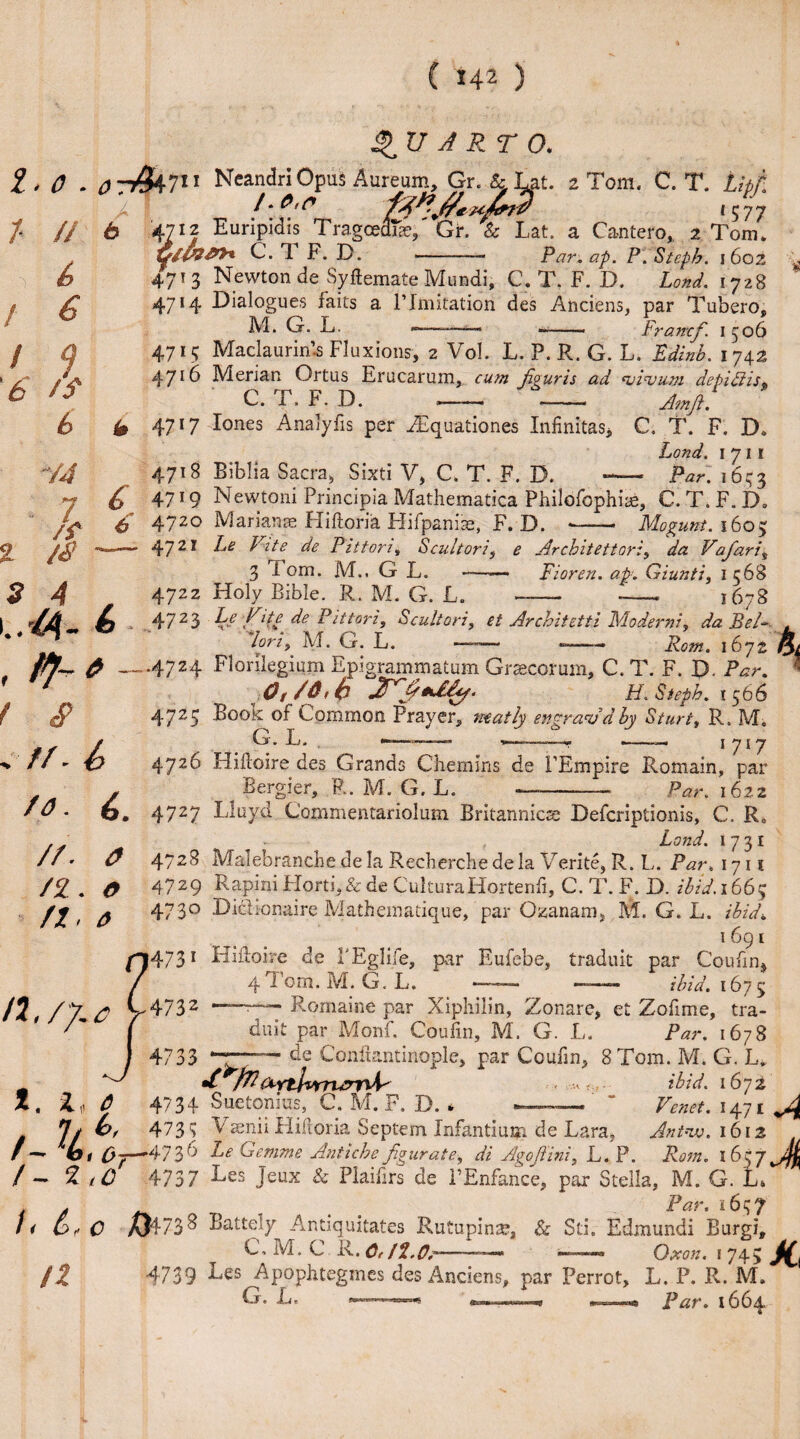 ( 142 )
QUARTO.
2. 0. 0 4711 Neandri Opus Aureum, Gr. & Lat. 2 Tom. C. T. Lipſ.
1577
7. 11 6 4712 Euripidis Tragœdiæ, Gr. & Lat. a Cantero, 2 Tom.
C. T F. D. ——— Par. ap. P. Steph. 1602
6 4713 Newton de Syſtemate Mundi, C. T. F. D. Lond. 1728
1 6 4714 Dialogues faits a l'Imitation des Anciens, par Tubero,
M. G. L. —— —— Francf. 1506
1 9 4715 Maclaurin's Fluxions, 2 Vol. L. P. R. G. L. Edinb. 1742
6 15 4716 Merian Ortus Erucarum, cum figuris ad vivum depictis,
C. T. F. D. —— —— Amſt.
6 6 4717 Iones Analyſis per Æquationes Infinitas, C. T. F. D.
Lond. 1711
14 4718 Biblia Sacra, Sixti V, C. T. F. D. —— Par. 1653
7 6 4719 Newtoni Principia Mathematica Philoſophiæ, C. T. F. D.
15 6 4720 Marianæ Hiſtoria Hiſpaniæ, F. D. —— Mogunt. 1605
2 18 — 4721 Le Vite de Pittori, Scultori, e Architettori, da Vaſari,
3 Tom. M., G L. —— Fioren. ap. Giunti, 1568
3 4 4722 Holy Bible. R. M. G. L. —— —— 1678
1..14- 6 4723 Le Vite de Pittori, Scultori, et Architetti Moderni, da Bel-
lori, M. G. L. —— —— Rom. 1672
17- 0 —4724 Florilegium Epigrammatum Græcorum, C. T. F. D. Par.
0, 10, 6 H. Steph. 1566
1 8 4725 Book of Common Prayer, neatly engrav'd by Sturt, R. M.
G. L. —— —— —— 1717
11- 6 4726 Hiſtoire des Grands Chemins de l'Empire Romain, par
Bergier, R. M. G. L. ——— Par. 1622
10. 6. 4727 Lluyd Commentariolum Britannicæ Deſcriptionis, C. R.
Lond. 1731
11. 0 4728 Malebranche de la Recherche de la Verité, R. L. Par. 1711
12. 0 4729 Rapini Horti, & de Cultura Hortenſi, C. T. F. D. ibid. 1665
12, 0 4730 Dictionaire Mathematique, par Ozanam, M. G. L. ibid.
1691
4731 Hiſtoire de l'Egliſe, par Euſebe, traduit par Couſin,
4 Tom. M. G. L. —— —— ibid. 1675
12, 17. 0 4732 ——— Romaine par Xiphilin, Zonare, et Zoſime, tra-
duit par Monſ. Couſin, M. G. L. Par. 1678
4733 ——— de Conſtantinople, par Couſin, 8 Tom. M. G. L.
ibid. 1672
2. 2, 0 4734 Suetonius, C. M. F. D. ——— Venet. 1471
7, 6, 4735 Vænii Hiſtoria Septem Infantium de Lara, Antw. 1612
1 — 6, 0 —4736 Le Gemme Antiche figurate, di Agoſtini, L. P. Rom. 1657
1 — 2, 0 4737 Les Jeux & Plaiſirs de l'Enfance, par Stella, M. G. L.
Par. 1657
1, 6, 0 4738 Battely Antiquitates Rutupinæ, & Sti. Edmundi Burgi,
C. M. C R. 0, 12. 0. ——— —— Oxon. 1745
12 4739 Les Apophtegmes des Anciens, par Perrot, L. P. R. M.
G. L. —— —— —— Par. 1664